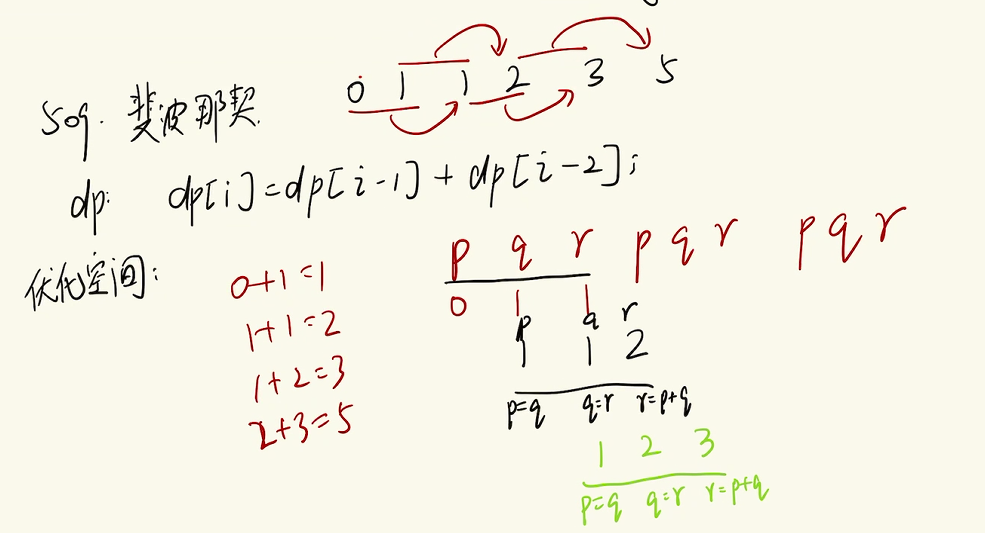 0 1 1 2 3 5
509. 斐波那契.
dp: dp[i]=dp[i-1]+dp[i-2];
优化空间:
0+1=1
1+1=2
1+2=3
2+3=5
p q r p q r p q r
0 1 1
p q r
1 1 2
p=q q=r r=p+q
1 2 3
p=q q=r r=p+q